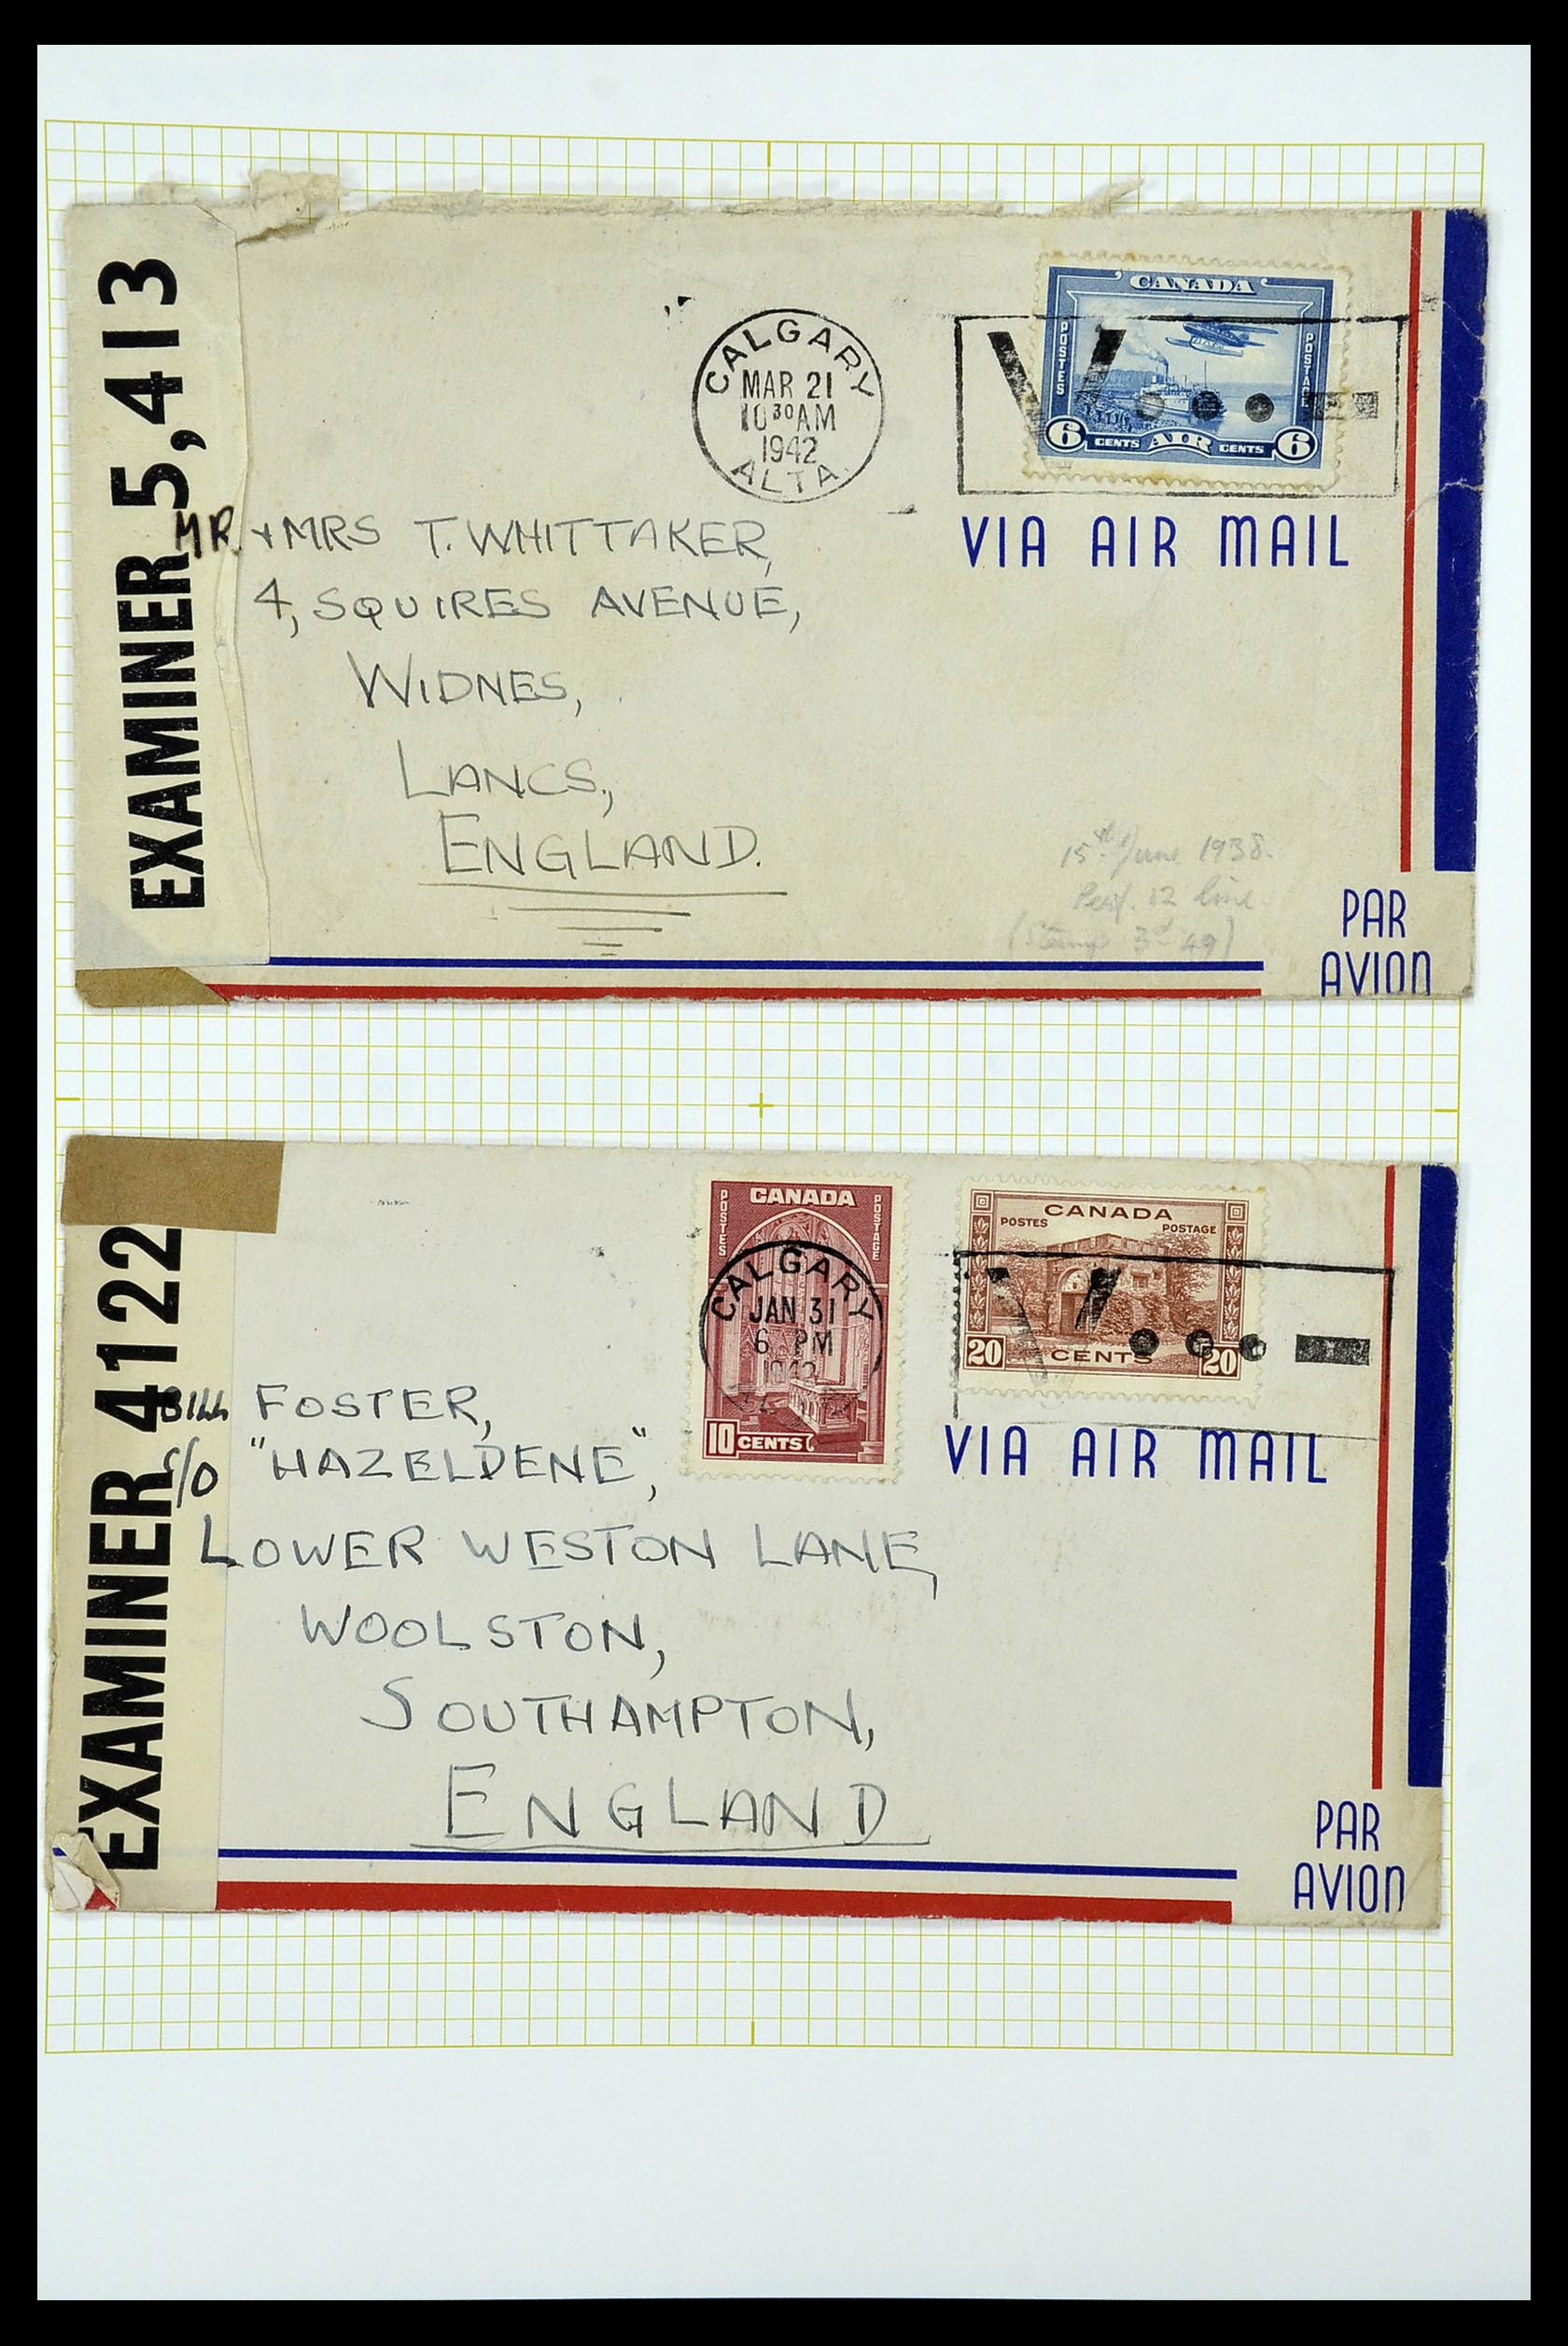 EXAMINER 5,413
CALGARY
MAR 21
10 30 AM
1942
ALTA.
CANADA
POSTES POSTAGE
6 CENTS AIR CENTS 6
V...-
VIA AIR MAIL
MR. + MRS T. WHITTAKER,
4, SQUIRES AVENUE,
WIDNES,
LANCS.,
ENGLAND.
15th June 1938.
Perf. 12 line.
(Stamp 3d 49)
PAR
AVION
EXAMINER 4122
CANADA
POSTES POSTAGE
10 CENTS
CALGARY
JAN 31
6 PM
1942
CANADA
POSTES POSTAGE
20 CENTS 20
V...-
VIA AIR MAIL
BILL FOSTER,
C/O "HAZELDENE",
LOWER WESTON LANE,
WOOLSTON,
SOUTHAMPTON,
ENGLAND
PAR
AVION